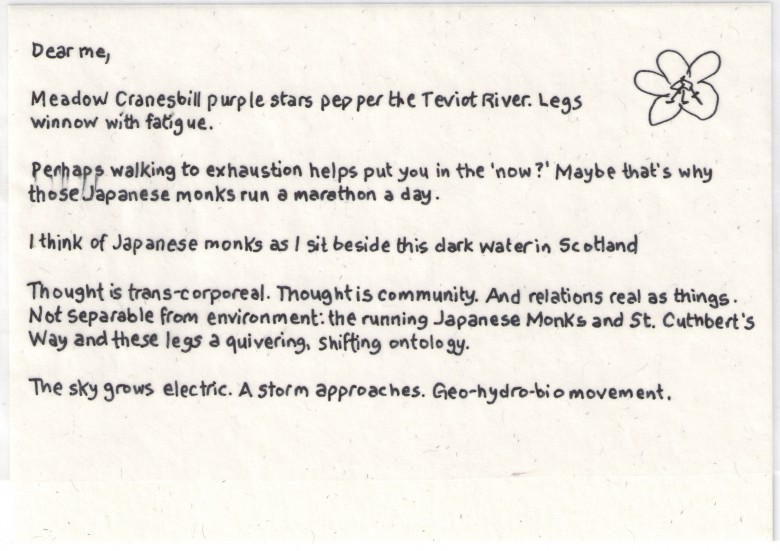 Dear me,
Meadow Cranesbill purple stars pepper the Teviot River. Legs
winnow with fatigue.
Perhaps walking to exhaustion helps put you in the 'now?' Maybe that's why
those Japanese monks run a marathon a day.
I think of Japanese monks as I sit beside this dark water in Scotland
Thought is trans-corporeal. Thought is community. And relations real as things.
Not separable from environment: the running Japanese Monks and St. Cuthbert's
Way and these legs a quivering, shifting ontology.
The sky grows electric. A storm approaches. Geo-hydro-bio movement.